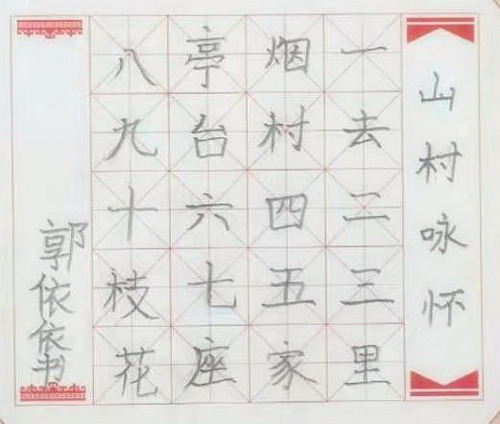 山村咏怀
一去二三里
烟村四五家
亭台六七座
八九十枝花
郭依依书